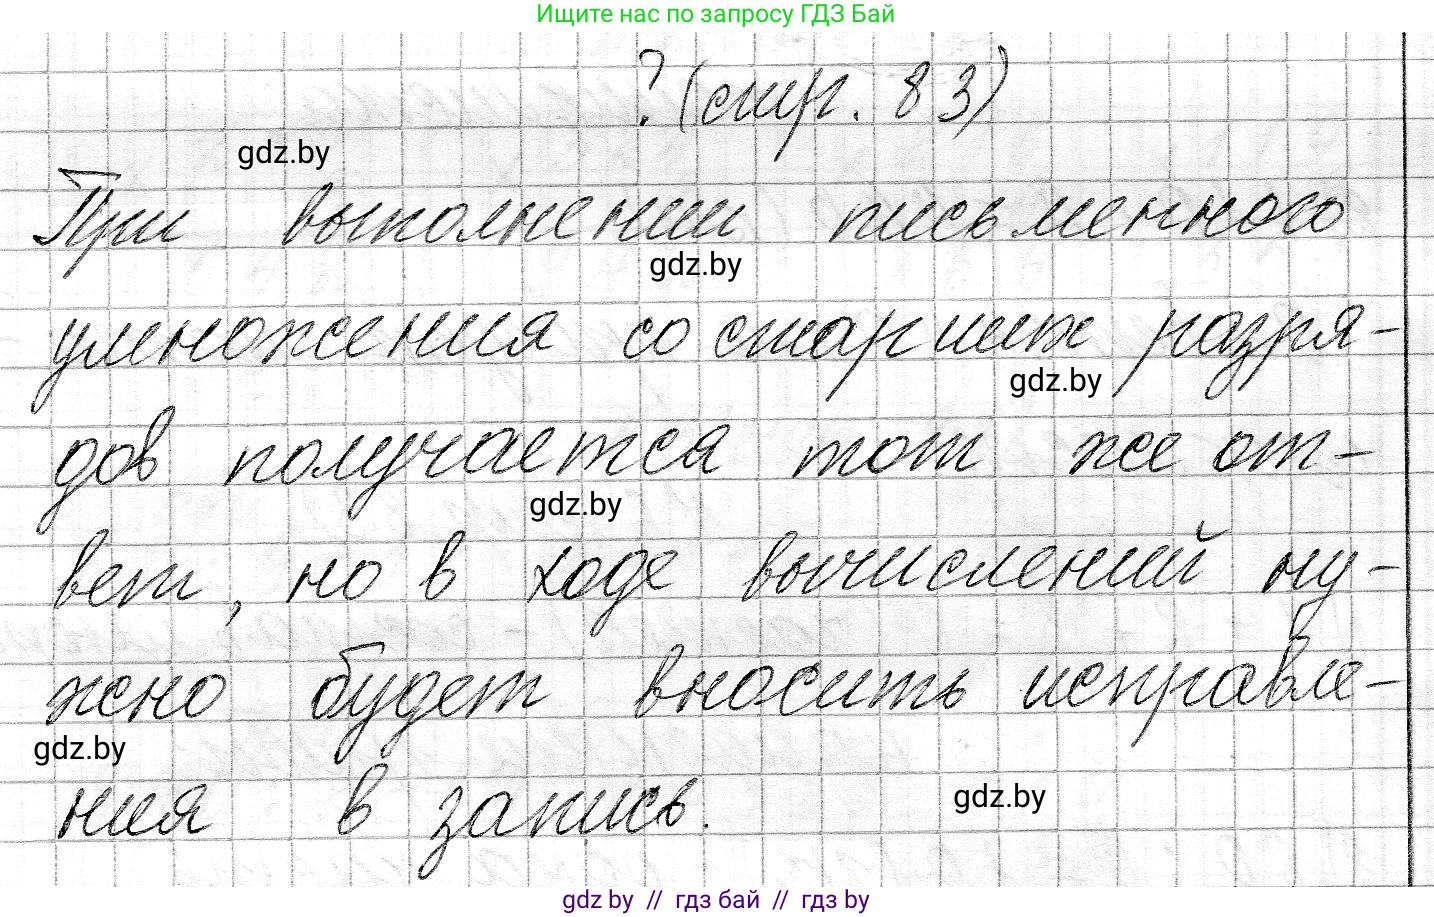 Ищите нас по запросу ГДЗ Бай
? (стр. 83)
gdz.by
При выполнении письменного
gdz.by
умножения со старших разря-
gdz.by
дов получается тот же от-
gdz.by
вет, но в ходе вычислений ну-
жно будет вносить исправле-
gdz.by
ния в запись.
gdz.by
gdz.by // гдз бай // гдз by